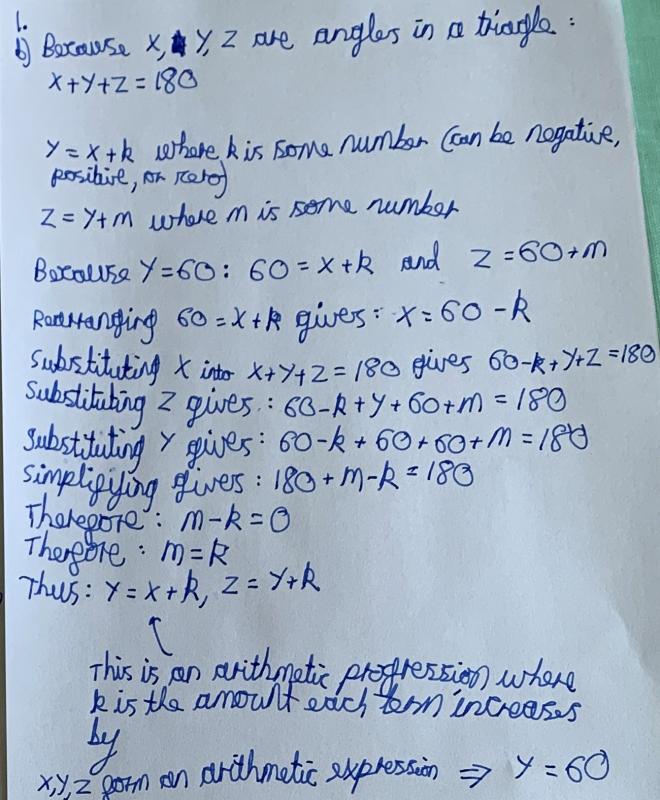 1.
b) Because X, Y, Z are angles in a triagle :
X+Y+Z = 180
Y = X + k where k is some number (can be negative,
positive, or zero)
Z = Y+m where m is some number
Because Y=60 : 60 = X+k and Z = 60+m
Rearranging 60 = X+k gives : X = 60 - k
Substituting X into X+Y+Z = 180 gives 60-k+Y+Z = 180
Substituting Z gives : 60-k+Y+60+m = 180
Substituting Y gives : 60-k+60+60+m = 180
Simplifying gives : 180+m-k = 180
Therefore : m-k = 0
Therefore : m = k
Thus : Y = X+k, Z = Y+k
This is an arithmetic progression where
k is the amount each term increases
by
X,Y,Z form an arithmetic expression ⇒ Y = 60